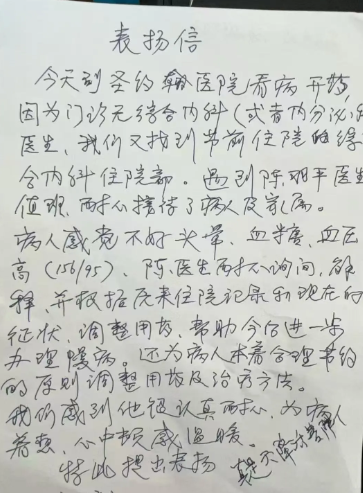 表扬信
今天到圣约翰医院看病开药,
因为门诊无综合内科(或者内分泌
医生,我们又找到节前住院的综
合内科住院部。遇到陈明平医生
值班,耐心接待了病人及家属。
病人感觉不好头晕、血糖、血压
高(156/95)、陈医生耐心询问,解
释,并根据原来住院记录和现在的
征状,调整用药,帮助今后进一步
办理慢病。还为病人本着合理节约
的原则调整用药及治疗方法。
我们感到他很认真耐心,为病人
着想,心中颇感温暖。
特此提出表扬